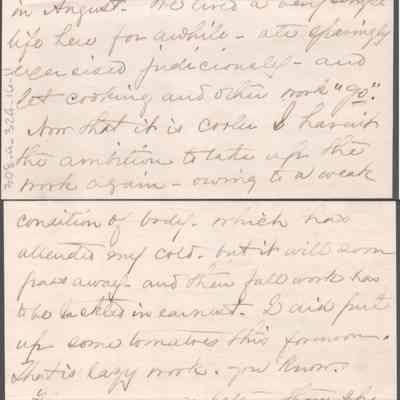 in August. We lived a very simple
life here for awhile - ate sparingly
exercised judiciously - and
let cooking and other work "go".
Now that it is cooler I haven't
the ambition to take up the
work again - owing to a weak
condition of body - which has
attended my cold - but it will soon
pass away - and then fall work has
to be tackled in earnest. I did put
up some tomatoes this forenoon.
That is lazy work - you know.